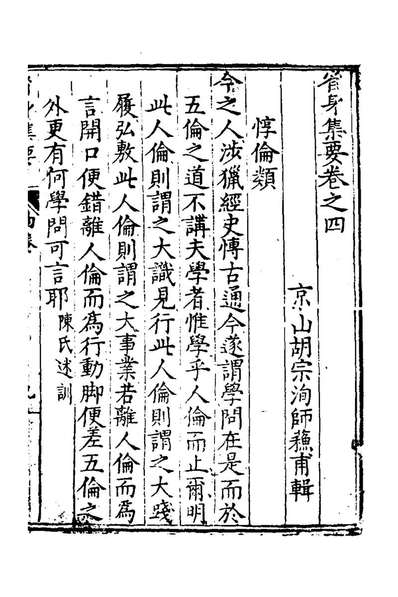 省身集要卷之四
京山胡宗洵師蘓甫輯
惇倫類
今之人涉獵經史愽古通今遂謂學問在是而於
五倫之道不講夫學者惟學乎人倫而止爾明
此人倫則謂之大識見行此人倫則謂之大踐
履弘敷此人倫則謂之大事業若離人倫而爲
言開口便錯離人倫而爲行動脚便差五倫之
外更有何學問可言耶 陳氏述訓
身集要
四卷